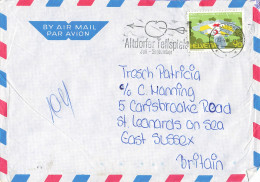 BY AIR MAIL
PAR AVION
Altdorfer Tellspiele
HELVETIA
Trasch Patricia
c/o C Manning
5 Carisbrooke Road
St Leonards on Sea
East Sussex
Britain